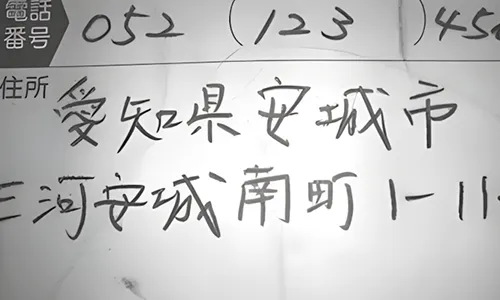 電話番号 052 (123) 45
住所 愛知県安城市
三河安城南町1-11